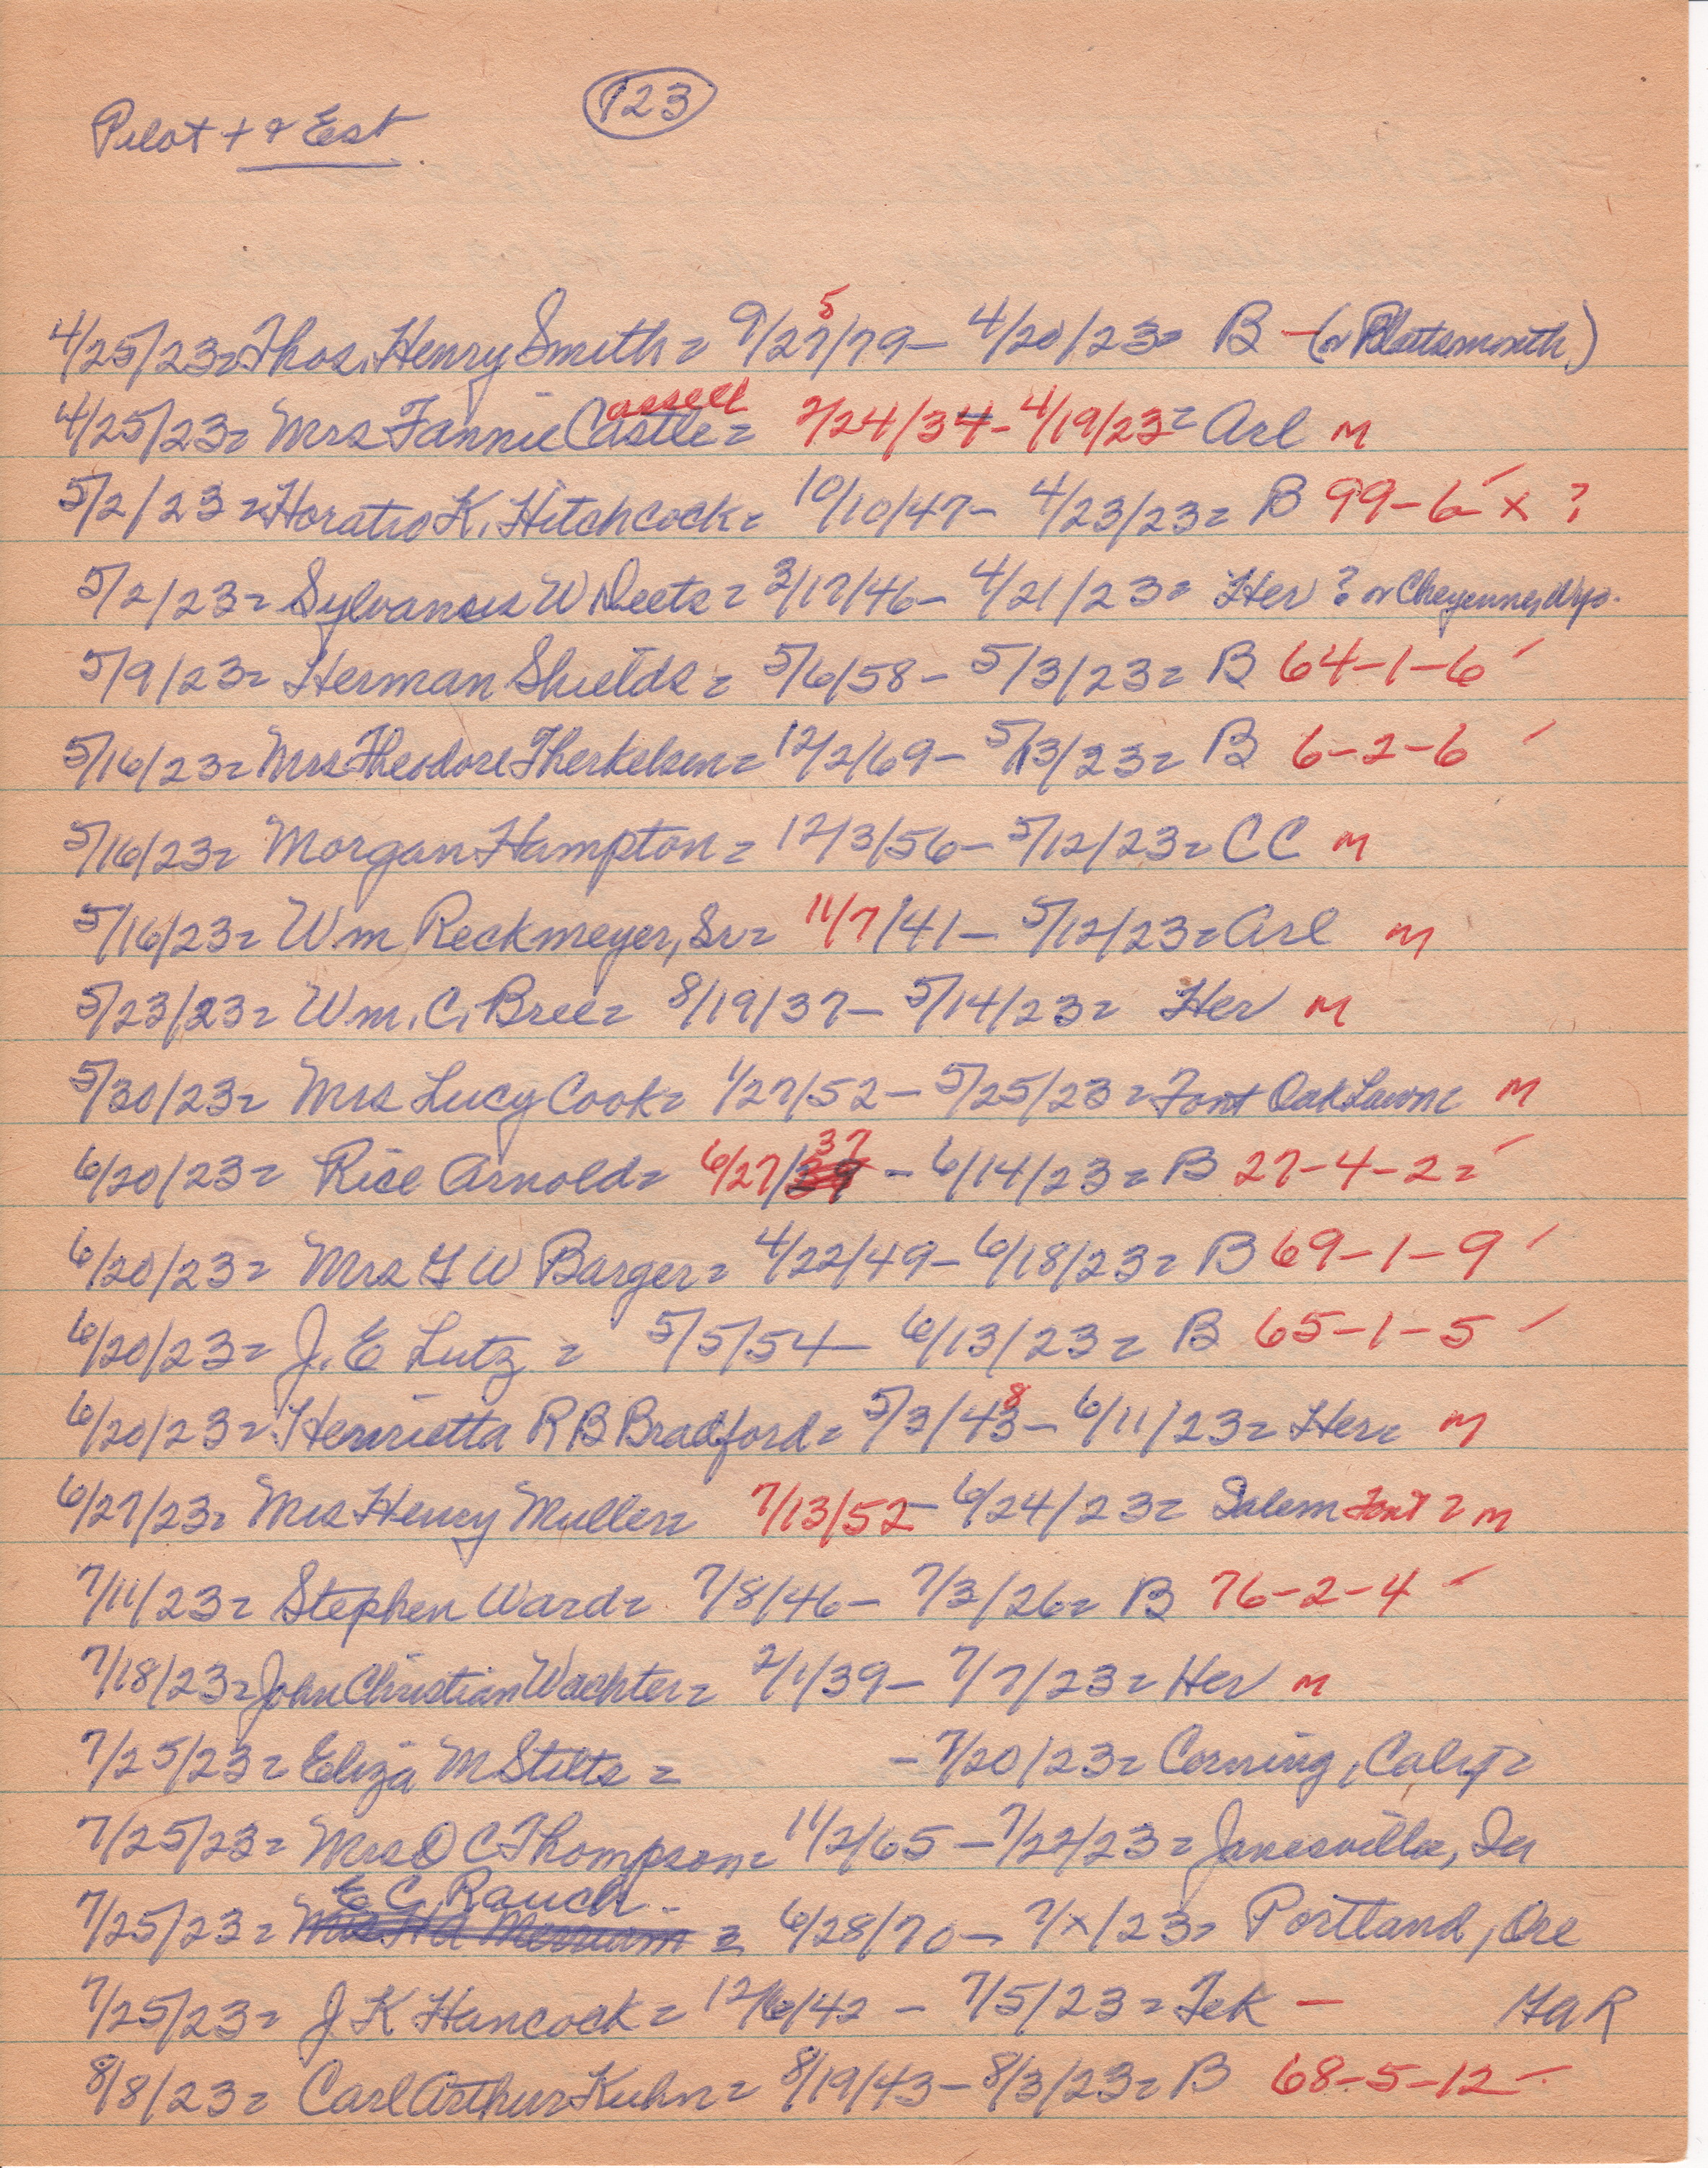 123
Pilot + & Est
4/25/23= Thos. Henry Smith = 9/27/79 - 4/20/23= B - (or Plattsmouth)
5
4/25/23= Mrs Fannie Castle = 2/24/34 - 4/19/23= Arl M
assell
5/2/23 = Horatio K. Hitchcock = 10/10/47 - 4/23/23= B 99-6 ✓ x ?
5/2/23= Sylvanus W Deets = 3/17/46 - 4/21/23= Her ? or Cheyenne, Wyo.
5/9/23= Herman Shields = 5/6/58 - 5/3/23= B 64-1-6 ✓
5/16/23= Mrs Theodore Therkelsen = 12/2/69 - 5/13/23= B 6-2-6 ✓
5/16/23= Morgan Hampton = 12/3/56 - 5/12/23= CC M
5/16/23= Wm Reckmeyer, Sr= 11/7/41 - 5/12/23= Arl M
5/23/23= Wm. C. Bree= 8/19/37 - 5/14/23= Her M
5/30/23= Mrs Lucy Cook= 1/27/52 - 5/25/23= Font Oak Lawn= M
37
6/20/23= Rice Arnold= 6/27/39 - 6/14/23= B 27-4-2= ✓
6/20/23= Mrs G W Barger= 4/22/49 - 6/18/23= B 69-1-9 ✓
6/20/23= J. E Lutz = 5/5/54 - 6/13/23= B 65-1-5 ✓
6/20/23= Henrietta R B Bradford= 5/3/43 - 6/11/23= Her= M
8
6/27/23= Mrs Henry Muller= 7/13/52 - 6/24/23= Salem Font = M
7/11/23= Stephen Ward= 7/8/46 - 7/3/26= B 76-2-4 ✓
7/18/23= John Christian Wachter= 2/1/39 - 7/7/23= Her M
7/25/23= Eliza M Stilts = - 7/20/23= Corning, Calif=
7/25/23= Mrs D C Thompson= 11/2/65 - 7/22/23= Janesville, Ia
E C Rauch -
7/25/23= Mrs H A Merriam = 6/28/70 - 7/x/23= Portland, Ore
7/25/23= J K Hancock= 12/6/42 - 7/5/23= Tek - GAR
8/8/23= Carl Arthur Kuhn= 8/19/43 - 8/3/23= B 68-5-12 -